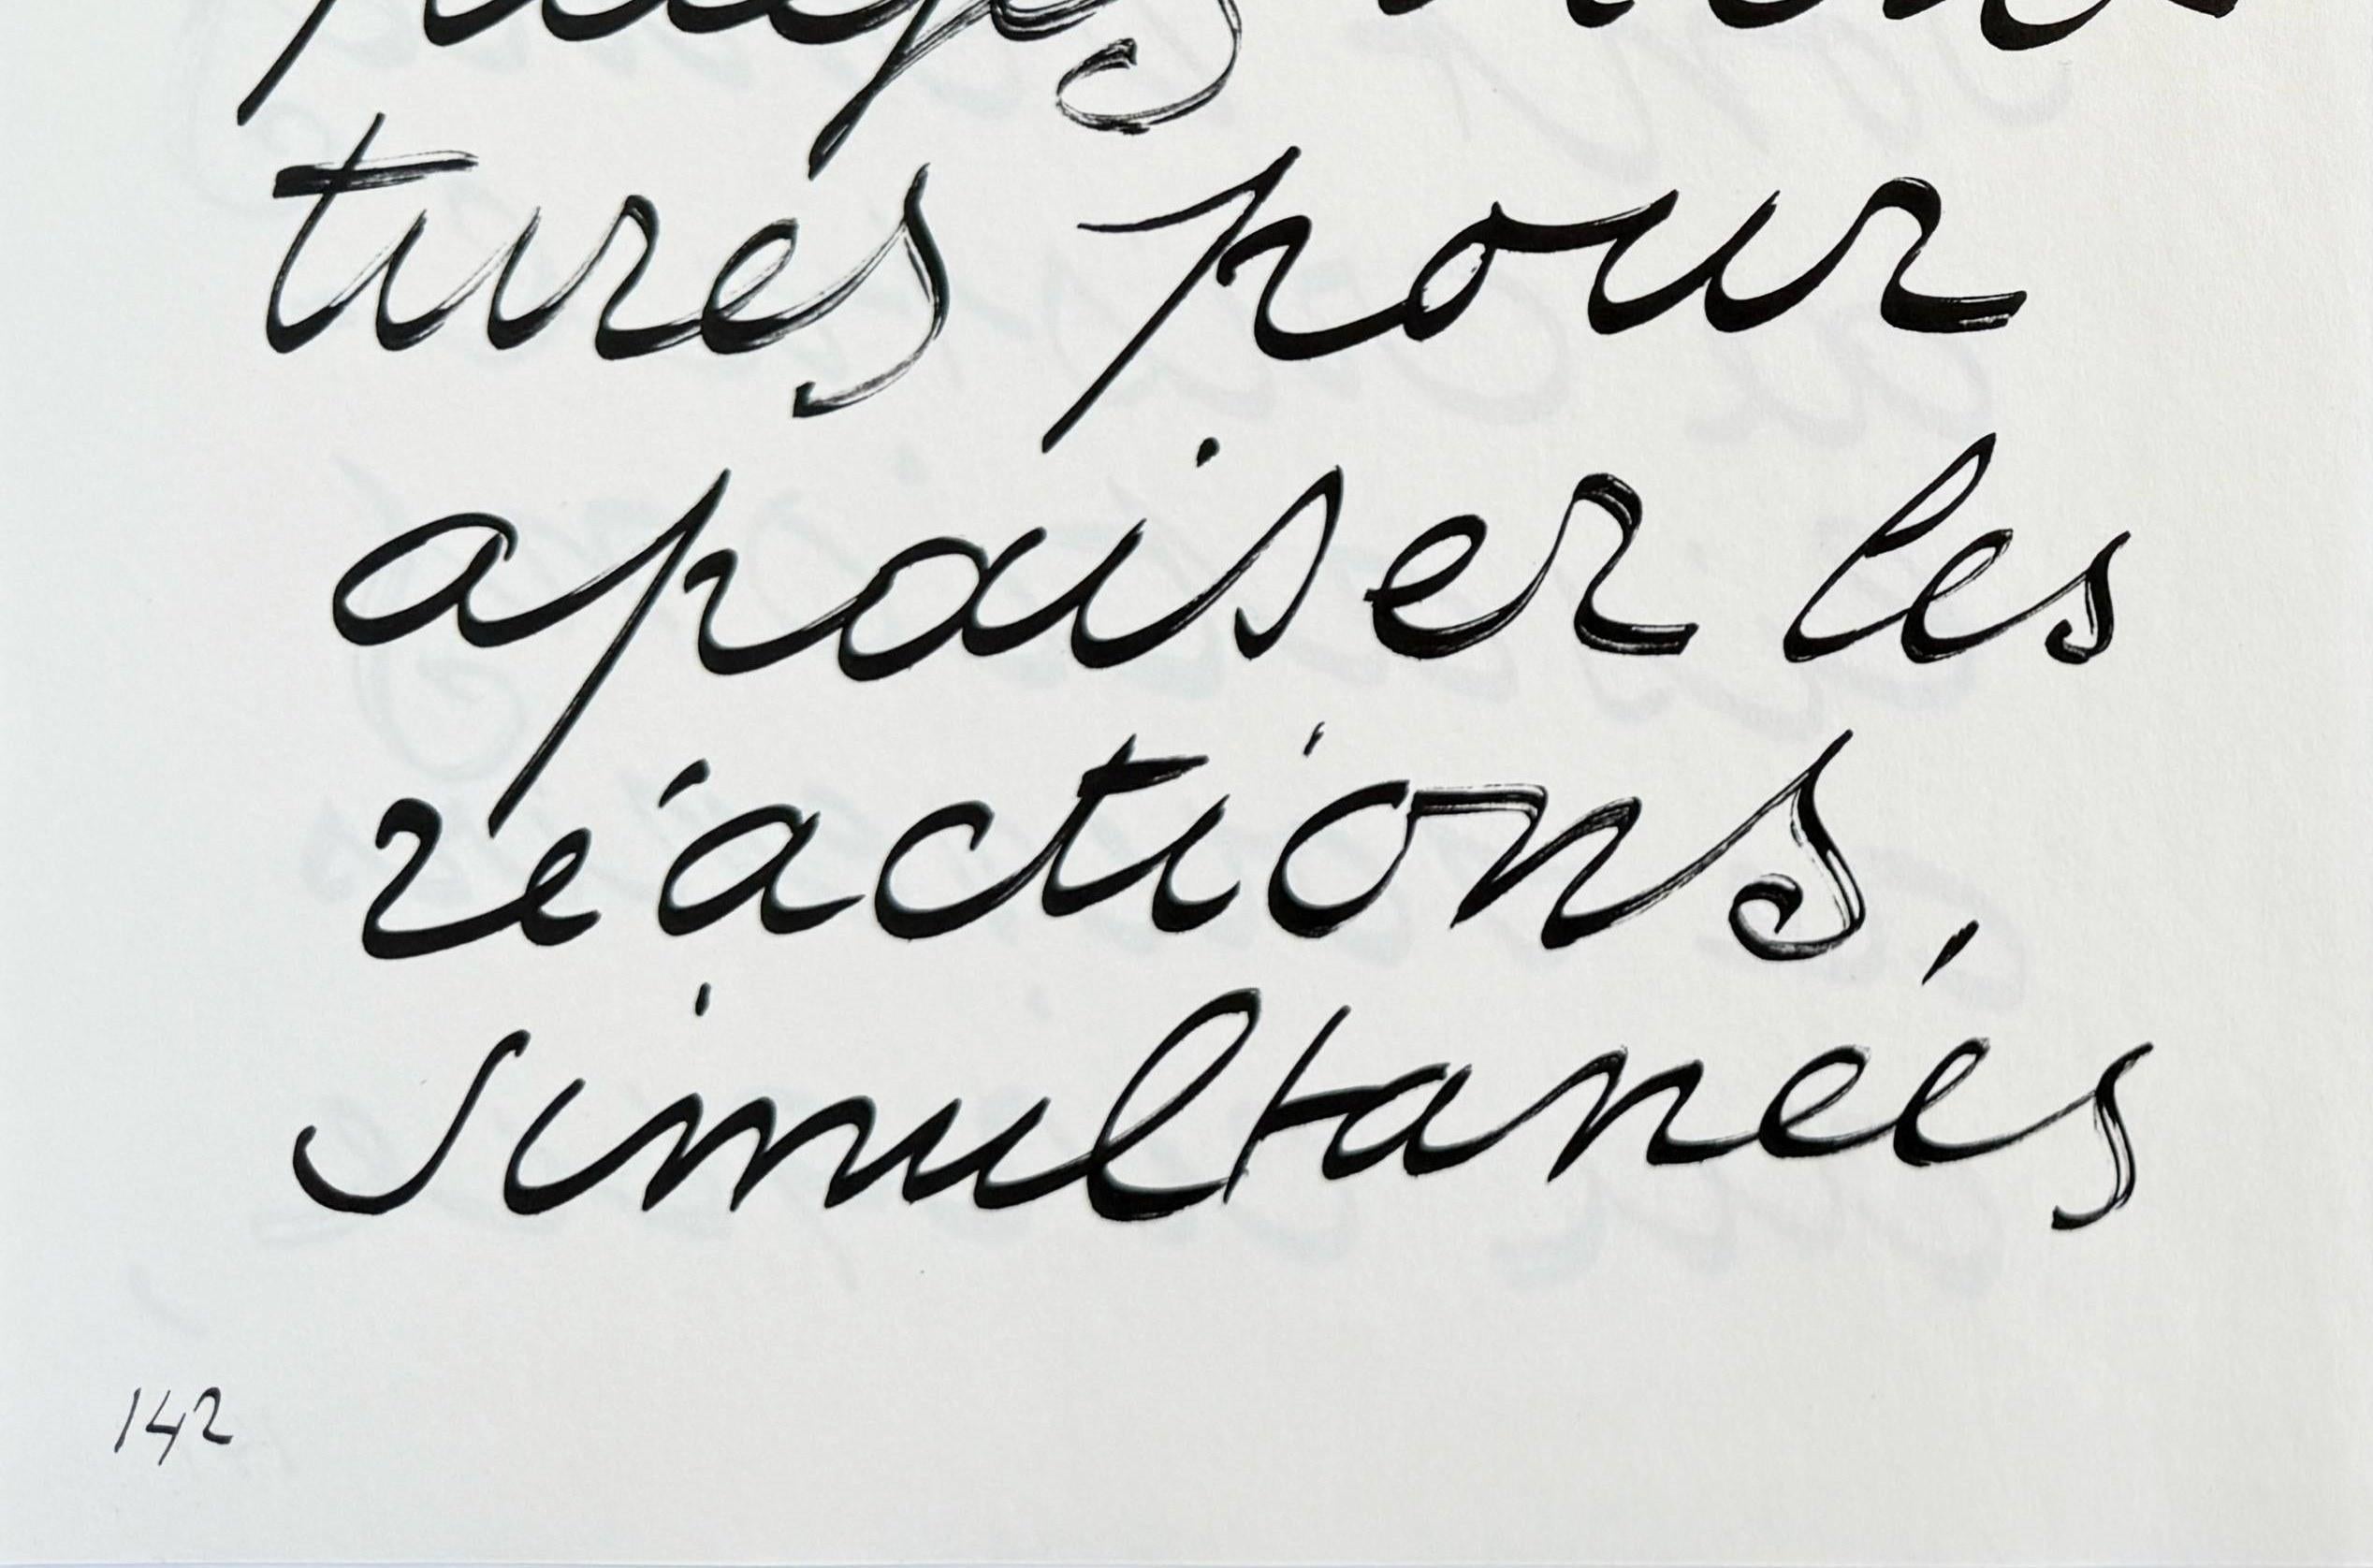 tures pour
apaiser les
réactions
simultanées
142